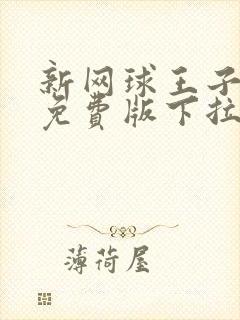 新网球王子
免费版下拉
薄荷屋